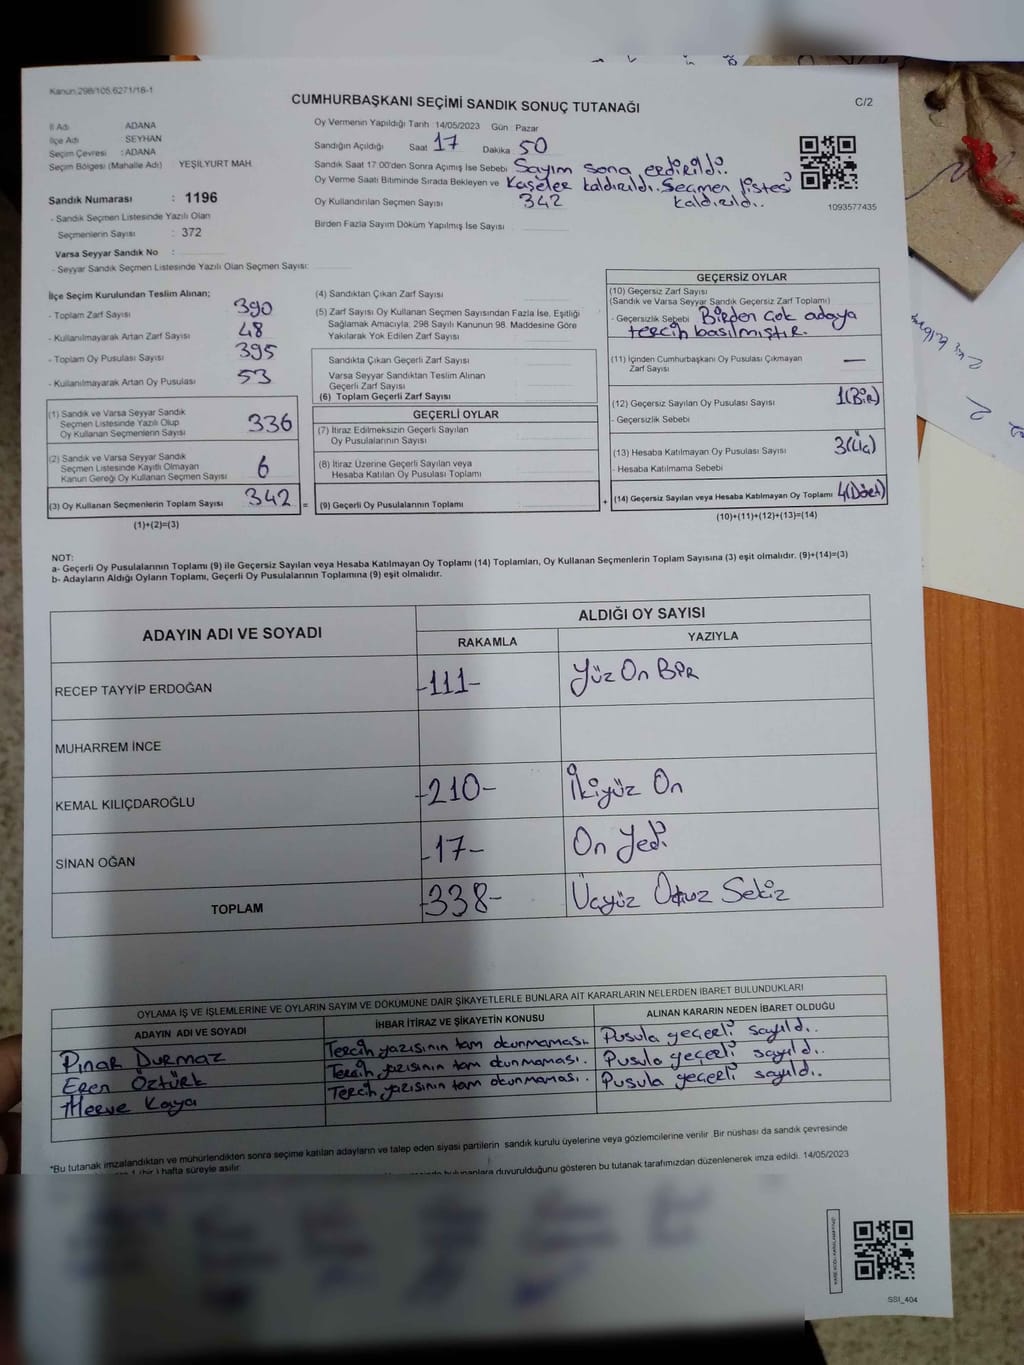 Kanun.298/105.6271/16-1
CUMHURBAŞKANI SEÇİMİ SANDIK SONUÇ TUTANAĞI
C/2
İl Adı : ADANA
İlçe Adı : SEYHAN
Seçim Çevresi : ADANA
Seçim Bölgesi (Mahalle Adı) : YEŞİLYURT MAH.
Sandık Numarası : 1196
- Sandık Seçmen Listesinde Yazılı Olan
Seçmenlerin Sayısı : 372
Varsa Seyyar Sandık No :
- Seyyar Sandık Seçmen Listesinde Yazılı Olan Seçmen Sayısı:
Oy Vermenin Yapıldığı Tarih 14/05/2023 Gün Pazar
Sandığın Açıldığı Saat 17 Dakika 50
Sandık Saat 17:00'den Sonra Açımış İse Sebebi Sayım sona erdirildi.
Oy Verme Saati Bitiminde Sırada Bekleyen ve Kaşeler kaldırıldı. Seçmen listesi
Oy Kullandırılan Seçmen Sayısı 342 kaldırıldı..
Birden Fazla Sayım Döküm Yapılmış İse Sayısı
1093577435
İlçe Seçim Kurulundan Teslim Alınan;
- Toplam Zarf Sayısı 390
- Kullanılmayarak Artan Zarf Sayısı 48
- Toplam Oy Pusulası Sayısı 395
- Kullanılmayarak Artan Oy Pusulası 53
(1) Sandık ve Varsa Seyyar Sandık
Seçmen Listesinde Yazılı Olup
Oy Kullanan Seçmenlerin Sayısı 336
(2) Sandık ve Varsa Seyyar Sandık
Seçmen Listesinde Kayıtlı Olmayan
Kanun Gereği Oy Kullanan Seçmen Sayısı 6
(3) Oy Kullanan Seçmenlerin Toplam Sayısı 342 =
(1)+(2)=(3)
(4) Sandıktan Çıkan Zarf Sayısı
(5) Zarf Sayısı Oy Kullanan Seçmen Sayısından Fazla İse, Eşitliği
Sağlamak Amacıyla, 298 Sayılı Kanunun 98. Maddesine Göre
Yakılarak Yok Edilen Zarf Sayısı
Sandıkta Çıkan Geçerli Zarf Sayısı
Varsa Seyyar Sandıktan Teslim Alınan
Geçerli Zarf Sayısı
(6) Toplam Geçerli Zarf Sayısı
GEÇERLİ OYLAR
(7) İtiraz Edilmeksizin Geçerli Sayılan
Oy Pusulalarının Sayısı
(8) İtiraz Üzerine Geçerli Sayılan veya
Hesaba Katılan Oy Pusulası Toplamı
(9) Geçerli Oy Pusulalarının Toplamı +
GEÇERSİZ OYLAR
(10) Geçersiz Zarf Sayısı
(Sandık ve Varsa Seyyar Sandık Geçersiz Zarf Toplamı)
- Geçersizlik Sebebi Birden çok adaya
tercih basılmıştır.
(11) İçinden Cumhurbaşkanı Oy Pusulası Çıkmayan
Zarf Sayısı —
(12) Geçersiz Sayılan Oy Pusulası Sayısı 1(Bir)
- Geçersizlik Sebebi
(13) Hesaba Katılmayan Oy Pusulası Sayısı 3(Üç)
- Hesaba Katılmama Sebebi
(14) Geçersiz Sayılan veya Hesaba Katılmayan Oy Toplamı 4(Dört)
(10)+(11)+(12)+(13)=(14)
NOT:
a- Geçerli Oy Pusulalarının Toplamı (9) ile Geçersiz Sayılan veya Hesaba Katılmayan Oy Toplamı (14) Toplamları, Oy Kullanan Seçmenlerin Toplam Sayısına (3) eşit olmalıdır. (9)+(14)=(3)
b- Adayların Aldığı Oyların Toplamı, Geçerli Oy Pusulalarının Toplamına (9) eşit olmalıdır.
ADAYIN ADI VE SOYADI
ALDIĞI OY SAYISI
RAKAMLA YAZIYLA
RECEP TAYYİP ERDOĞAN -111- Yüz On Bir
MUHARREM İNCE
KEMAL KILIÇDAROĞLU -210- İkiyüz On
SİNAN OĞAN -17- On Yedi
TOPLAM -338- Üçyüz Otuz Sekiz
OYLAMA İŞ VE İŞLEMLERİNE VE OYLARIN SAYIM VE DÖKÜMÜNE DAİR ŞİKAYETLERLE BUNLARA AİT KARARLARIN NELERDEN İBARET BULUNDUKLARI
ADAYIN ADI VE SOYADI İHBAR İTİRAZ VE ŞİKAYETİN KONUSU ALINAN KARARIN NEDEN İBARET OLDUĞU
Pınar Durmaz Tercih yazısının tam okunmaması. Pusula geçerli sayıldı..
Eren Öztürk Tercih yazısının tam okunmaması. Pusula geçerli sayıldı..
Merve Kaya Tercih yazısının tam okunmaması.. Pusula geçerli sayıldı..
*Bu tutanak imzalandıktan ve mühürlendikten sonra seçime katılan adayların ve talep eden siyasi partilerin sandık kurulu üyelerine veya gözlemcilerine verilir .Bir nüshası da sandık çevresinde
1 (bir ) hafta süreyle asılır
bulunanlara duyurulduğunu gösteren bu tutanak tarafımızdan düzenlenerek imza edildi. 14/05/2023
SSI_404